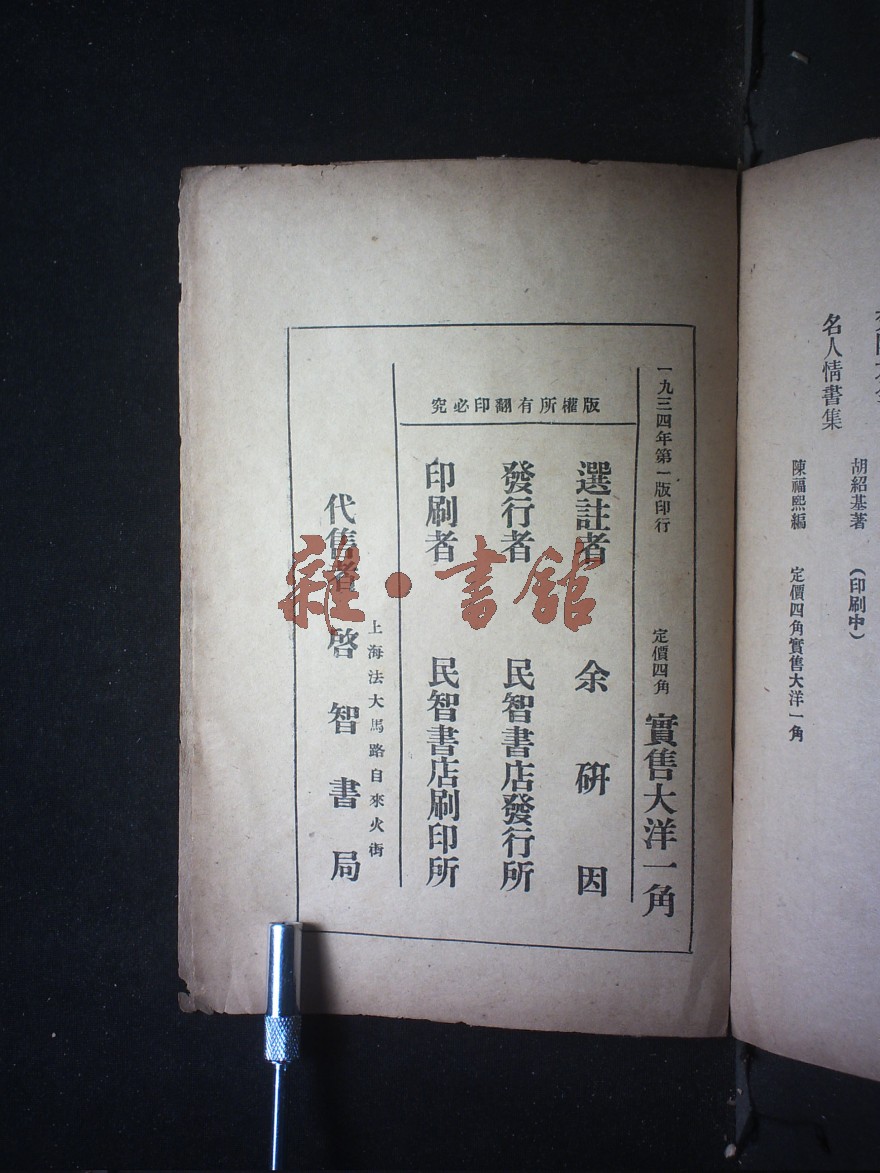 名人情書集
胡紹基著 (印刷中)
陳福熙編 定價四角實售大洋一角
一九三四年第一版印行 定價四角 實售大洋一角
版權所有翻印必究
選註者 余研因
發行者 民智書店發行所
印刷者 民智書店刷印所
上海法大馬路自來火街
代售者 啓智書局
雜·書館